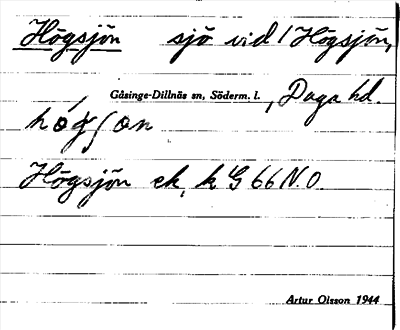 Högsjön sjö vid Högsjön,
Gåsinge-Dillnäs sn, Söderm. l., Daga hd.
hǿgʃøn
Högsjön ek. k G 66 N.O.
Artur Olsson 1944